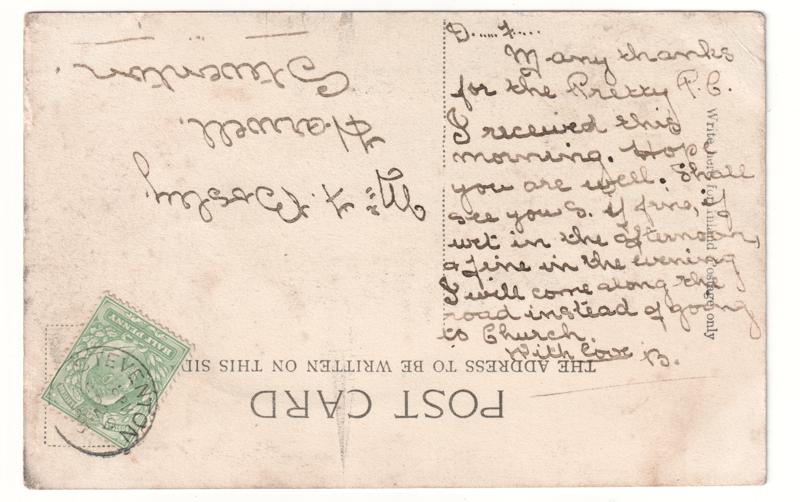 D.....F....
Many thanks
for the Pretty P.C.
I received this
morning. Hope
you are well. Shall
see you S. if fine, if
wet in the afternoon,
& fine in the evening
I will come along the
road instead of going
to Church.
With love B.
Mr F Bosley
Harwell.
Steventon.
POST CARD
THE ADDRESS TO BE WRITTEN ON THIS SID
Write here for Inland Postage only
HALF PENNY
STEVENTON